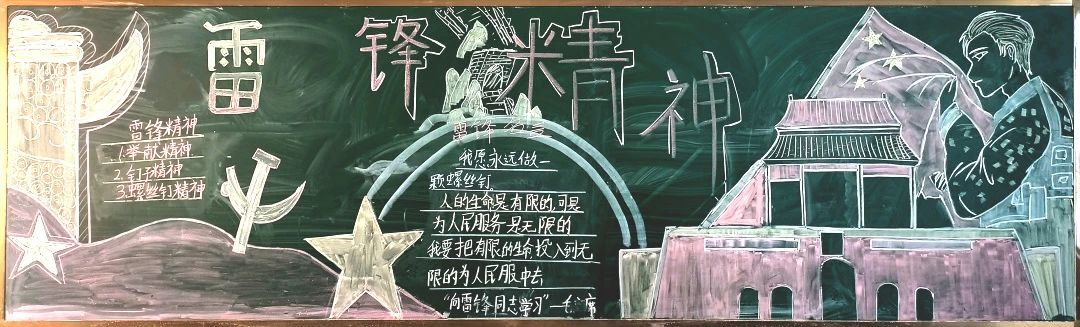 雷锋精神
雷锋精神
1.举献精神
2.钉子精神
3.螺丝钉精神
雷锋名言
我愿永远做一
颗螺丝钉。
人的生命是有限的,可是
为人民服务是无限的
我要把有限的生命投入到无
限的为人民服中去
"向雷锋同志学习"—毛主席